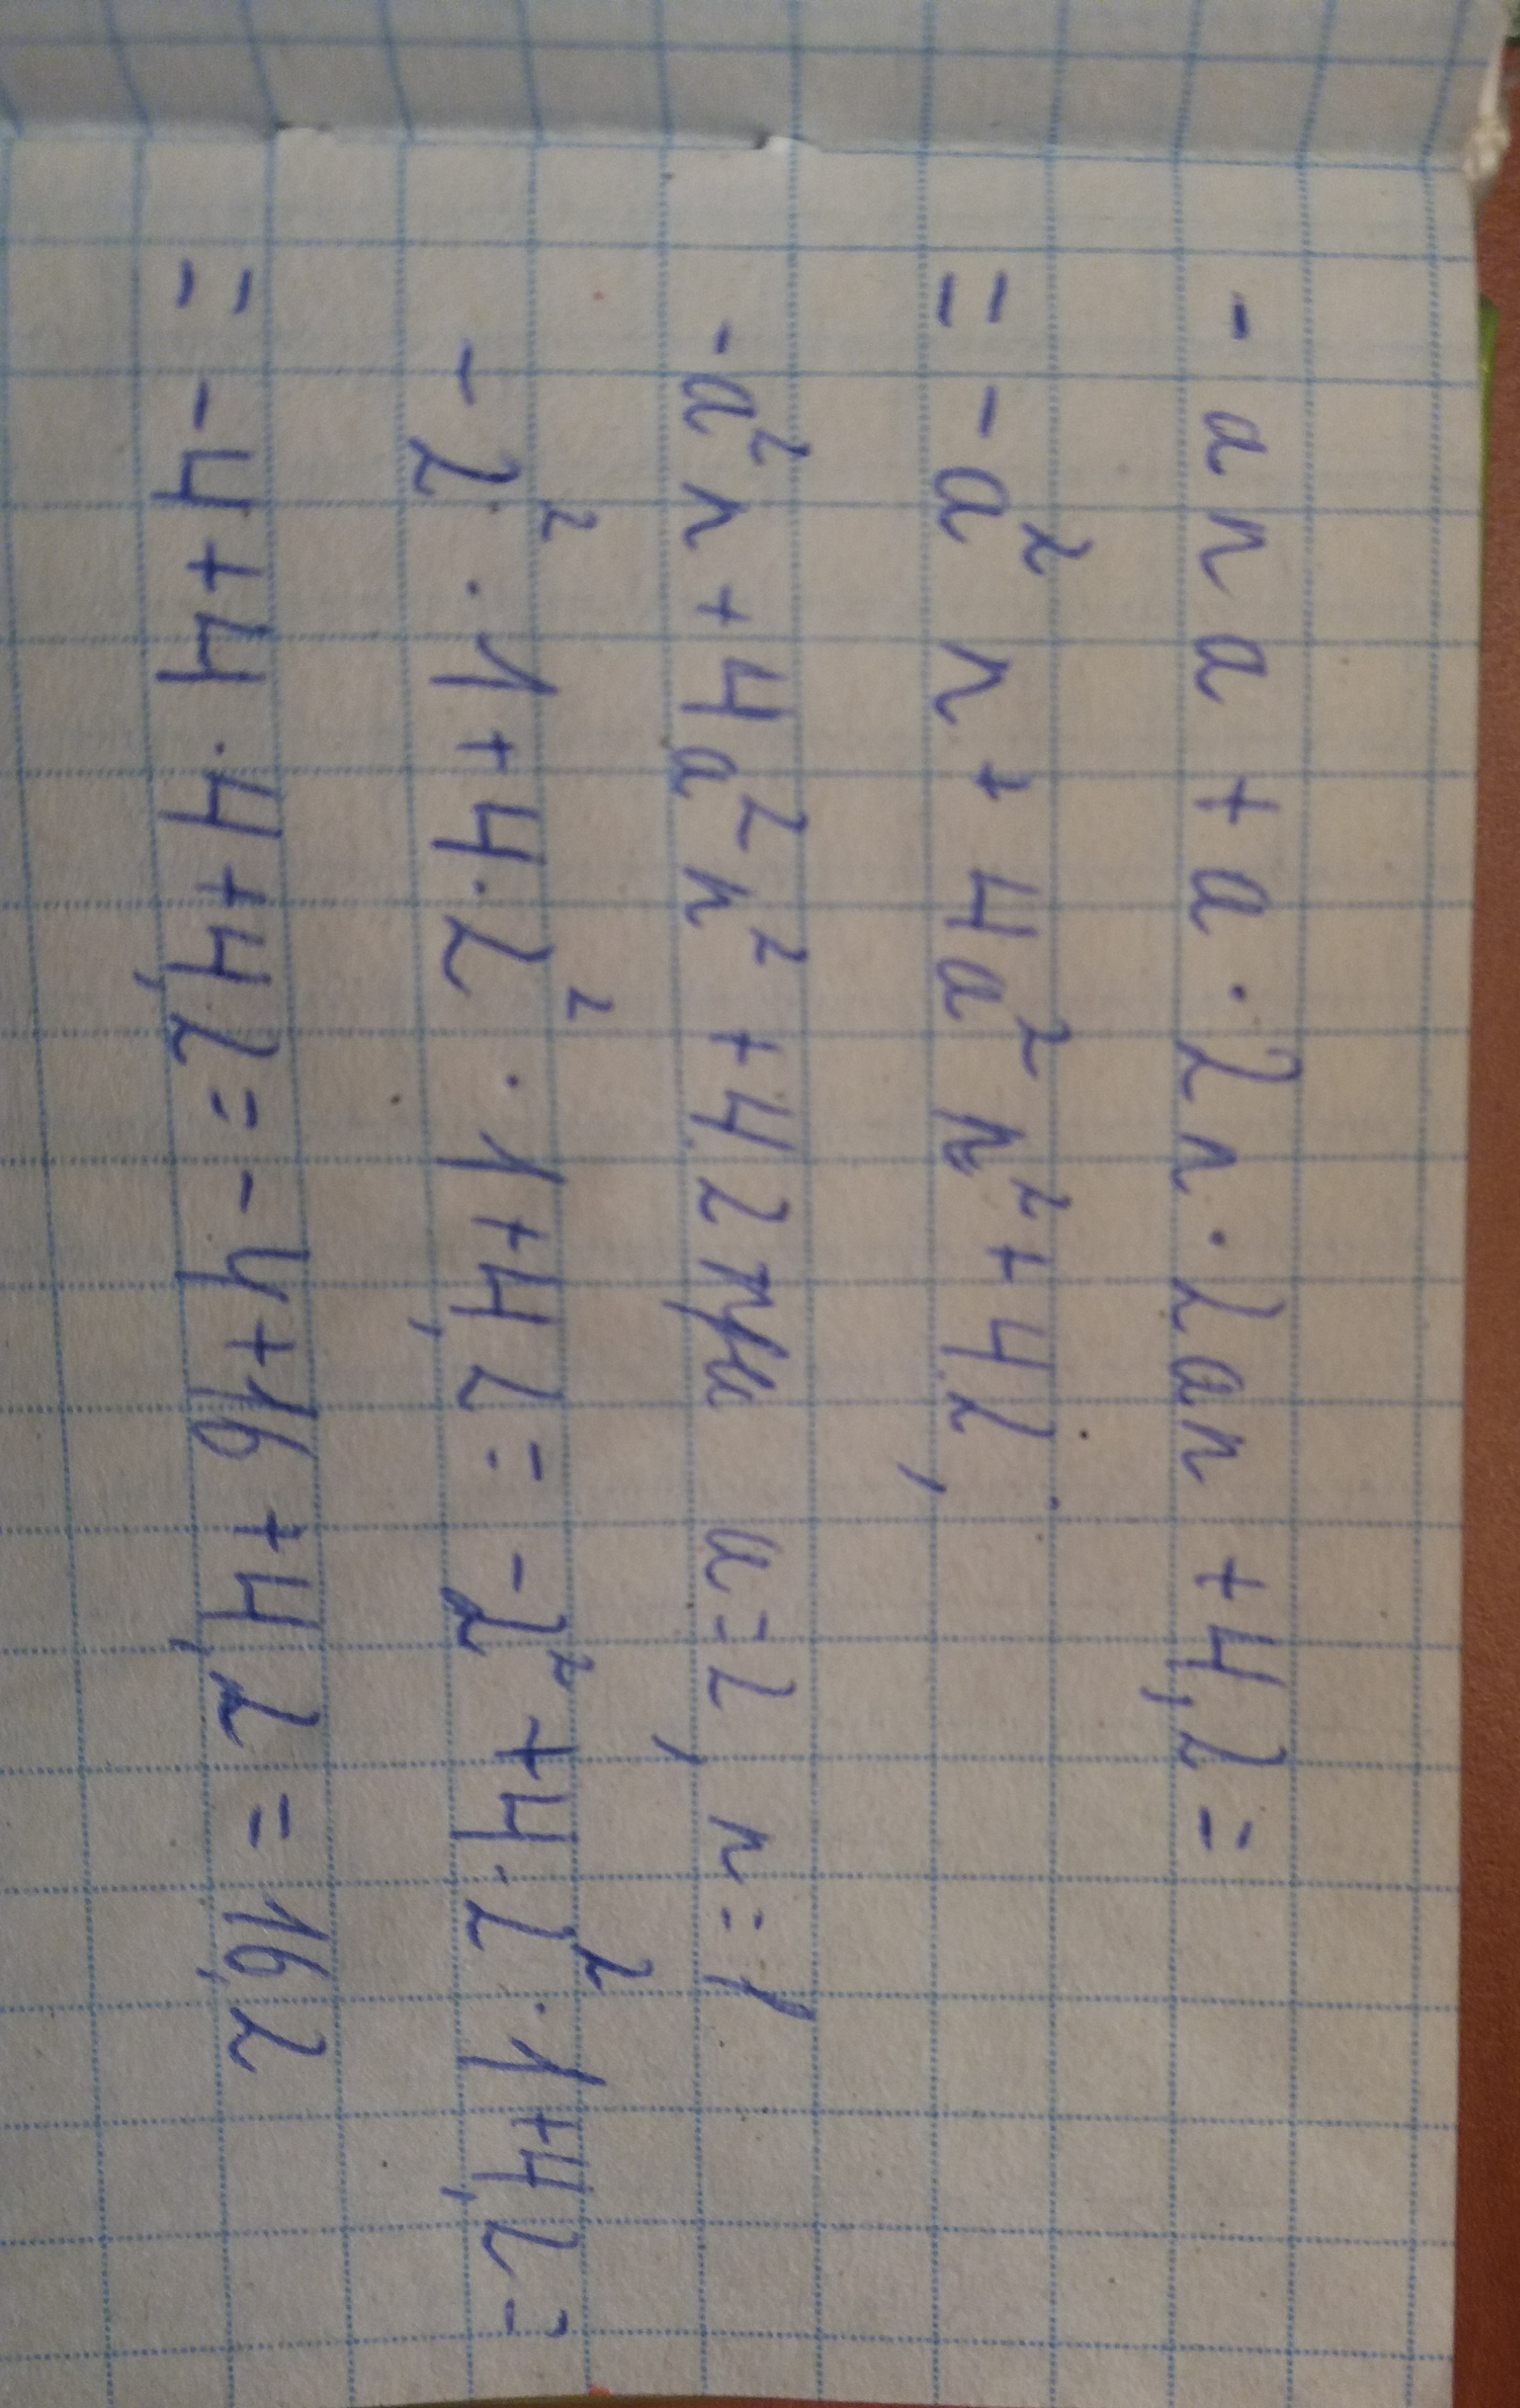 - a n a + a · 2 n · 2 a n + 4,2 =
= - a² n + 4 a² n² + 4,2 ;
- a² n + 4 a² n² + 4,2 при a = 2 , n = 1
- 2² · 1 + 4 · 2² · 1 + 4,2 = - 2² + 4 · 2² · 1 + 4,2 =
= - 4 + 4 · 4 + 4,2 = - 4 + 16 + 4,2 = 16,2